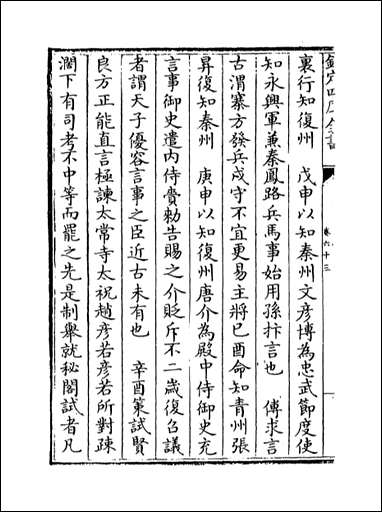 欽定四庫全書
卷六十三
裏行知復州　戊申以知秦州文彥博為忠武節度使
知永興軍兼秦鳳路兵馬事始用孫抃言也　傅求言
古渭寨方發兵戍守不宜更易主將已酉命知青州張
昇復知秦州　庚申以知復州唐介為殿中侍御史充
言事御史遣内侍賫勅告賜之介貶斥不二歲復召議
者謂天子優容言事之臣近古未有也　辛酉策試賢
良方正能直言極諫太常寺太祝趙彥若彥若所對疎
濶下有司考不中等而罷之先是制舉就秘閣試者凡